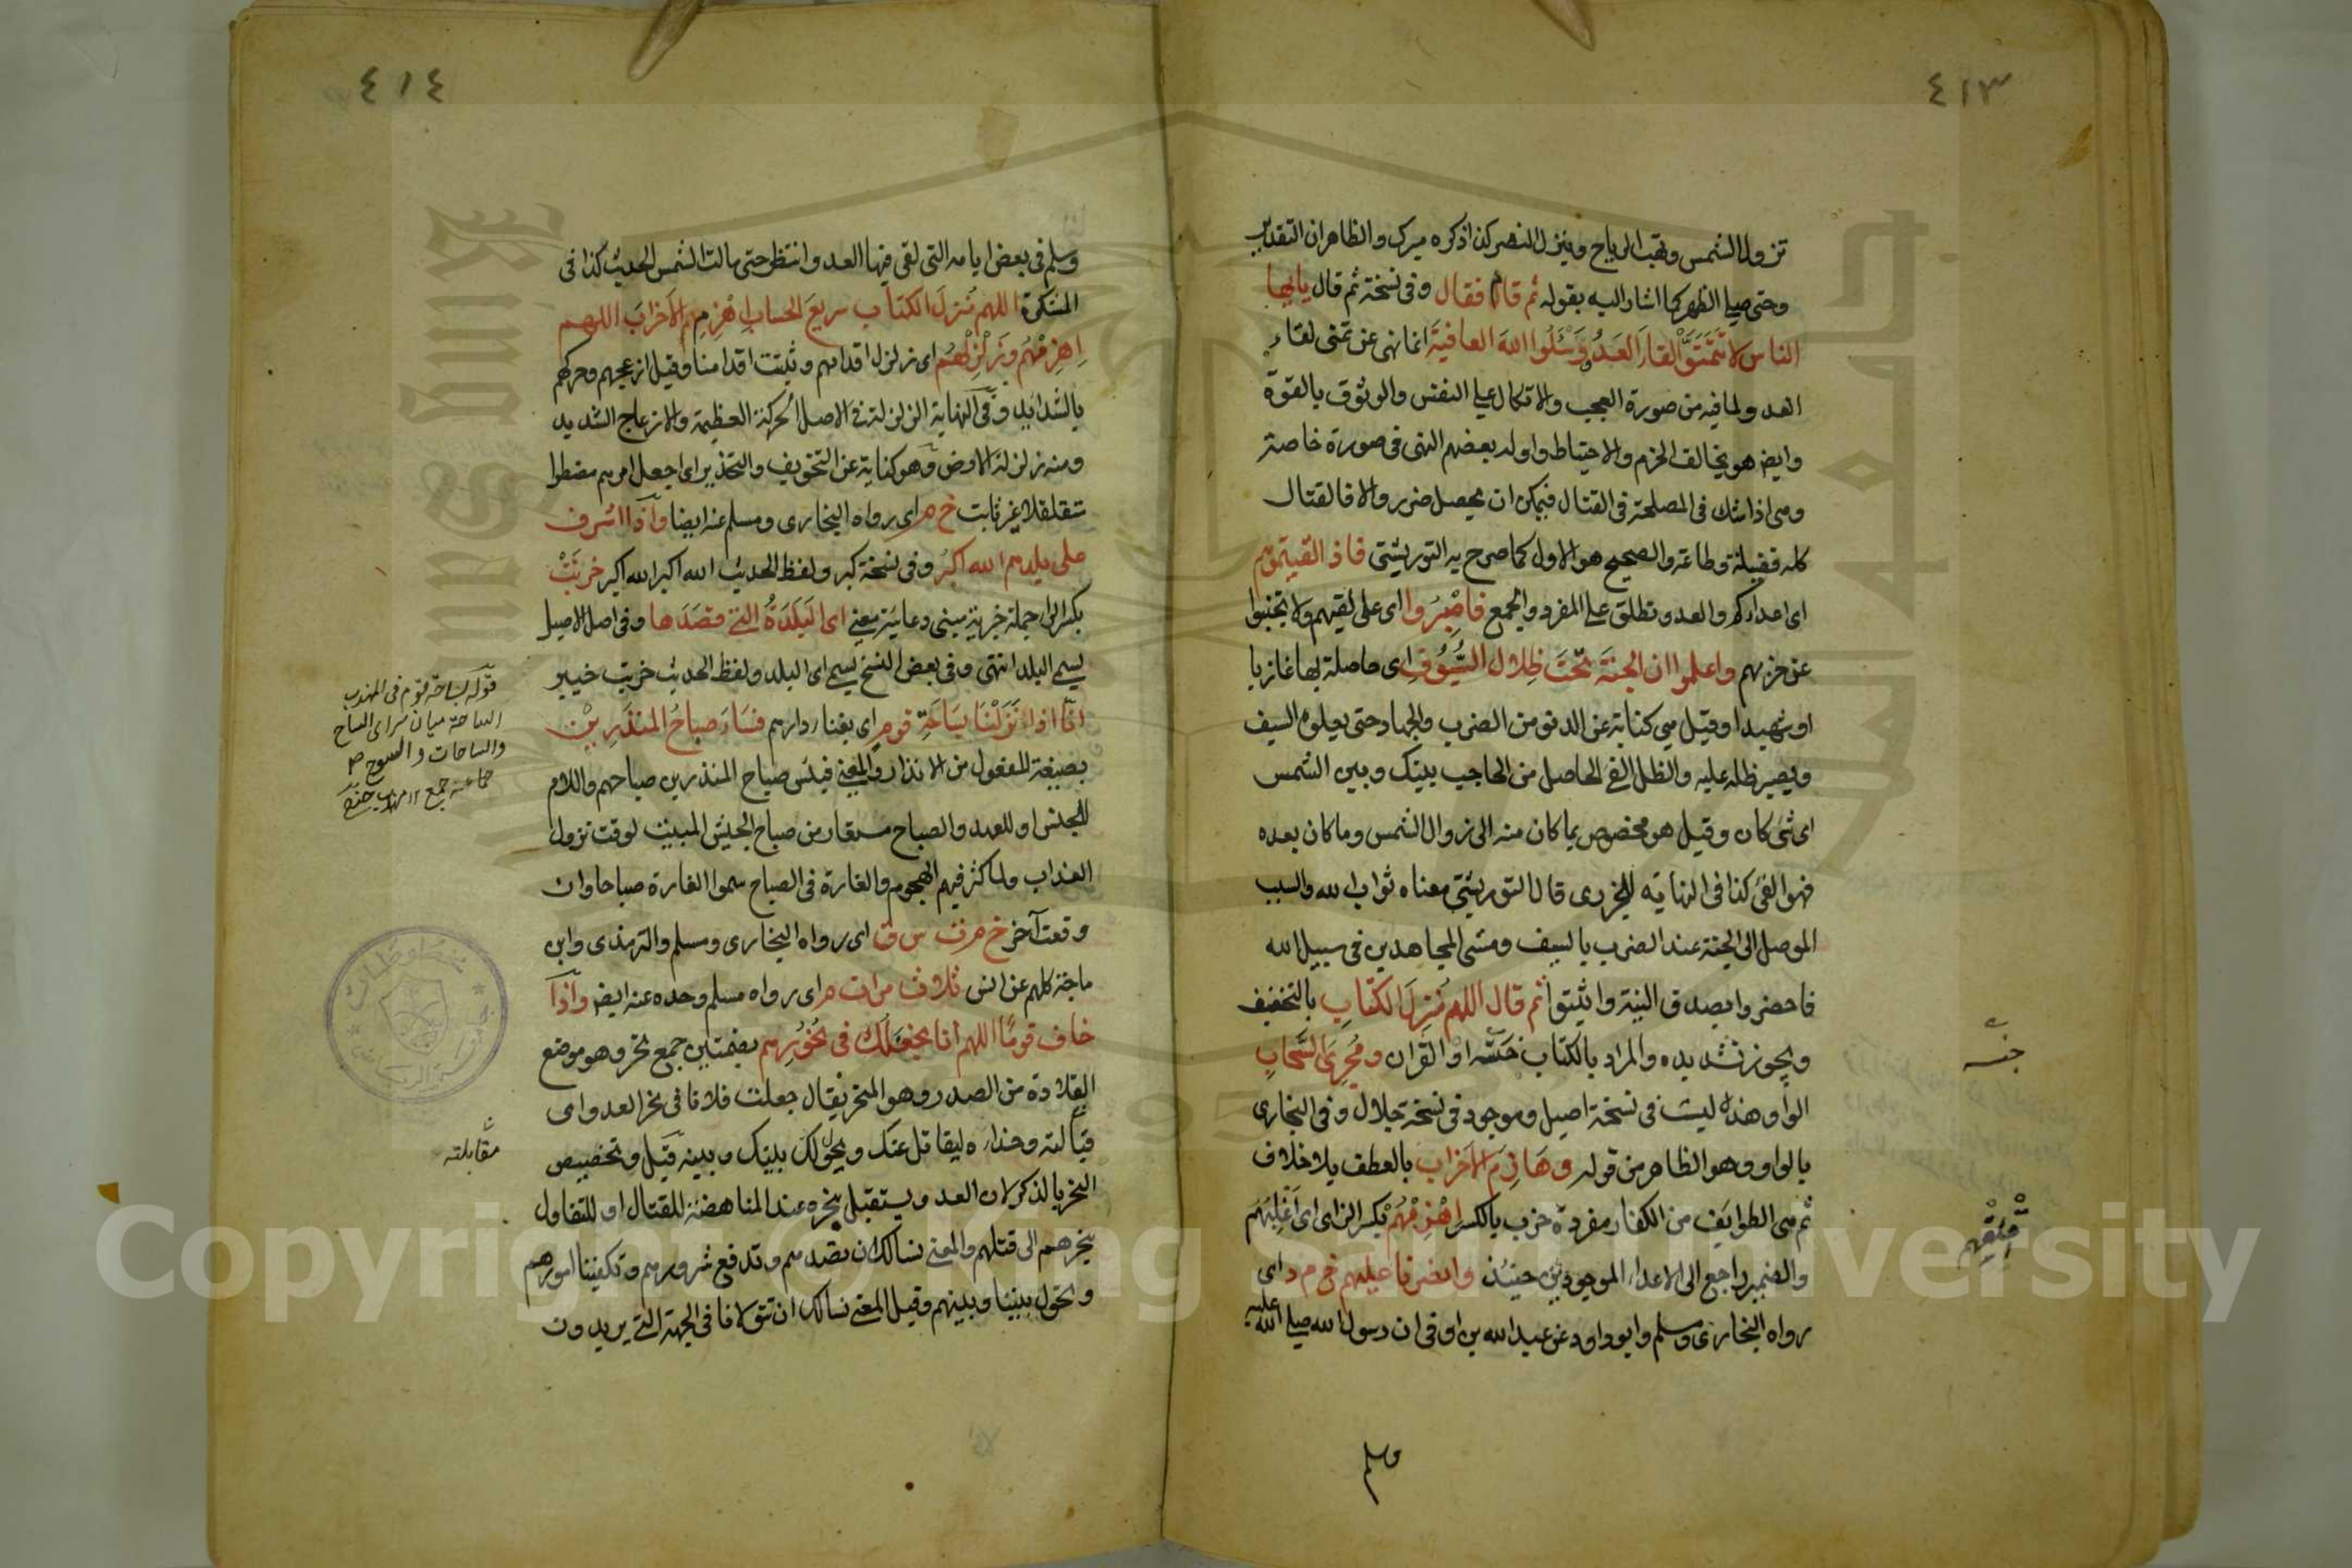 ٤١٣
تزول الشمس وتهب الرياح وينزل النصر كذا ذكره ميرك والظاهر ان التقدير
وحتى صلى الظهر كما اشار اليه بقوله ثم قام فقال وفى نسخة ثم قال يا ايها
الناس لا تتمنوا لقاء العدو وسلوا الله العافية انما نهى عن تمنى لقاء
العدو لما فيه من صورة العجب والاتكال على النفس والوثوق بالقوة
وايضا هو يخالف الحزم والاحتياط واوله بعضهم النهى فى صورة خاصة
وهى اذا شك فى المصلحة فى القتال فيمكن ان يحصل ضرر والا فالقتال
كله فضيلة وطاعة والصحيح هو الاول كما صرح به التوربشتى فاذا لقيتموهم
اى اعداءكم والعدو تطلق على المفرد والجمع فاصبروا اى على لقيهم ولا تجنبوا
عن حربهم واعلموا ان الجنة تحت ظلال السيوف اى حاصلة بها غازيا
او شهيدا وقيل هى كناية عن الدنو من الضرب والجهاد حتى يعلوه السيف
ويصير ظله عليه والظل الفئ الحاصل من الحاجب بينك وبين الشمس
اى شئ كان وقيل هو مخصوص بما كان منه الى زوال الشمس وما كان بعده
فهو الفئ كذا فى النهاية للجزرى قال التوربشتى معناه ثواب الله والسبب
الموصل الى الجنة عند الضرب بالسيف ومشى المجاهدين فى سبيل الله
فاحضروا بصدق النية واثبتوا ثم قال اللهم منزل الكتاب بالتخفيف
ويجوز تشديده والمراد بالكتاب جنسه او القران ومجرى السحاب
الواو هذه ليست فى نسخة اصيل وموجود فى نسخة جلال وفى البخارى
بالواو وهو الظاهر من قوله وهازم الاحزاب بالعطف بلا خلاف
ثم هى الطوايف من الكفار مفرده حزب بالكسر اهزمهم بكسر الزاى اى اغلبهم
والضمير راجع الى الاعداء الموجودين حينئذ وانصرنا عليهم خ م د اى
رواه البخارى ومسلم وابو داود عن عبد الله بن اوفى ان رسول الله صلى الله عليه
وسلم
جنسه
٤١٤
وسلم فى بعض ايامه التى لقى فيها العدو انتظر حتى مالت الشمس الحديث كذا فى
المشكوة اللهم منزل الكتاب سريع الحساب اهزم الاحزاب اللهم
اهزمهم وزلزلهم اى زلزل اقدامهم وثبت اقدامنا وقيل ازعجهم وحركهم
بالشدايد وفى النهاية الزلزلة فى الاصل الحركة العظيمة والازعاج الشديد
ومنه زلزلة الارض وهو كناية عن التخويف والتحذير اى اجعل امرهم مضطربا
متقلقلا غير ثابت خ م اى رواه البخارى ومسلم عنه ايضا واذا اشرف
على بلدهم الله اكبر وفى نسخة كبر ولفظ الحديث الله اكبر الله اكبر خربت
بكسر الراء جملة خبرية مبنى دعائية معنى اى البلدة التى قصدها وفى اصل الاصيل
يسم البلد انتهى وفى بعض النسخ يسمى اى البلد ولفظ الحديث خربت خيبر
انا اذا نزلنا بساحة قوم اى بفناء دارهم فساء صباح المنذرين
بصيغة المفعول من الانذار والمعنى فبئس صباح المنذرين صباحهم واللام
للجنس او للعهد والصباح مستعار من صباح الجيش المبيت لوقت نزول
العذاب ولما كثر فيهم الهجوم والغارة فى الصباح سموا الغارة صباحا وان
وقعت آخر خ م ت س ق اى رواه البخارى ومسلم والترمذى وابن
ماجة كلهم عن انس ثلاث مرات م اى رواه مسلم وحده عنه ايضا واذا
خاف قوما اللهم انا نجعلك فى نحورهم بضمتين جمع نحر وهو موضع
القلادة من الصدر وهو المنحر يقال جعلت فلانا فى نحر العدو اى
قبالته وحذاءه ليقاتل عنك ويحول بينك وبينه قيل وتخصيص
النحر بالذكر لان العدو يستقبل بنحره عند المناهضة للقتال او للتفاول
بنحرهم الى قتلهم والمعنى نسالك ان تصدهم وتدفع شرورهم وتكفينا امورهم
وتحول بيننا وبينهم وقيل المعنى نسالك ان تتولانا فى الجهة التى يريدون
قوله بساحة قوم فى المهذب
الساحة ميان سراى الساح
والساحات والسوح
مقابلته
Copyright © King Saud University
King Saud University
1957